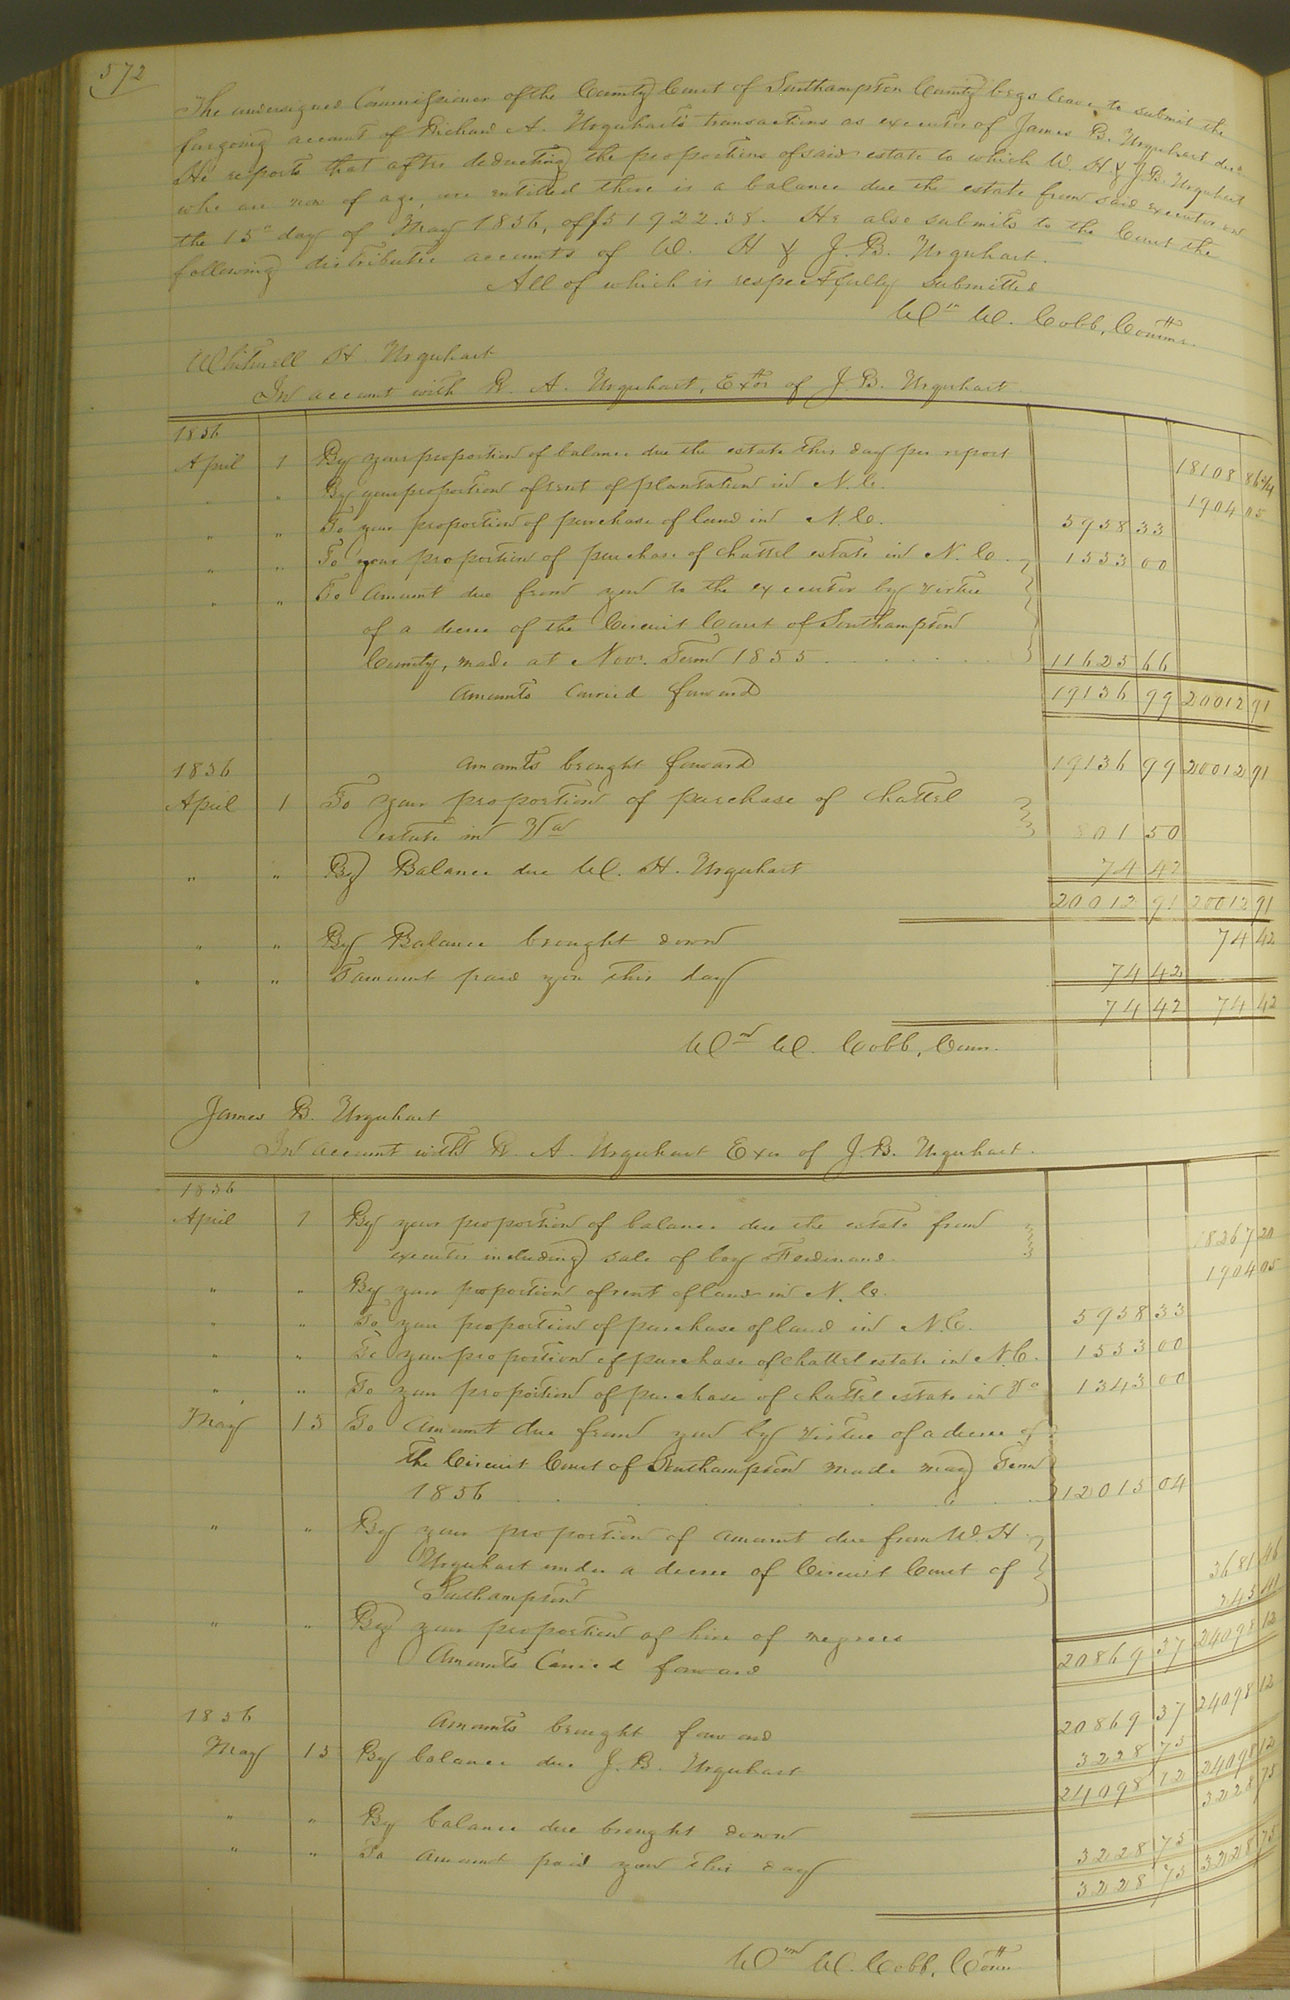 572
The undersigned Commissioner of the County Court of Southampton County begs leave to submit the
forgoing account of Richard A. Urquhart's transactions as executor of James B. Urquhart decd.
He reports that after deducting the proportions of said estate to which W. H & J. B. Urquhart
who are now of age, are entitled there is a balance due the estate from said executor on
the 15" day of May 1856, of $51922.38. He also submits to the Court the
following distributee accounts of W. H & J. B. Urquhart.
All of which is respectfully submitted
Wm W. Cobb, Commr.
Whitmell H. Urquhart
In account with R. A. Urquhart, Extor of J. B. Urquhart
1856
April 1 By your proportion of balance due the estate this day per report 18108 86 3/4
" " By your proportion of rent of plantation in N. C. 1904 05
" " To your proportion of purchase of land in N. C. 5958 33
" " To your proportion of purchase of chattel estate in N. C. 1553 00
" " To amount due from you to the executor by virtue
of a decree of the Circuit Court of Southampton
County, made at Novr. Term 1855 11625 66
Amounts carried forward 19136 99 20012 91
1856 Amounts brought forward 19136 99 20012 91
April 1 To your proportion of purchase of chattel
estate in Va 801 50
" " By Balance due W. H. Urquhart 74 42
20012 91 20012 91
" " By Balance brought down 74 42
" " To amount paid you this day 74 42
74 42 74 42
Wm W. Cobb, Comr.
James B. Urquhart
In account with R. A. Urquhart Exr of J. B. Urquhart.
1856
April 1 By your proportion of balance due the estate from
executor including sale of boy Ferdinand. 18267 20
" " By your proportion of rent of land in N. C. 1904 05
" " To your proportion of purchase of land in N.C. 5958 33
" " To your proportion of purchase of chattel estate in N.C. 1553 00
" " To your proportion of purchase of chattel estate in Va 1343 00
May 15 To Amount due from you by virtue of a decree of
the Circuit Court of Southampton made may Term
1856 12015 04
" " By your proportion of amount due from W. H
Urquhart under a decree of Circuit Court of
Southampton 3681 46
" " By your proportion of hire of negroes 245 41
Amounts Carried forward 20869 37 24098 12
1856 Amounts brought forward 20869 37 24098 12
May 15 By balance due J. B. Urquhart 3228 75
24098 12 24098 12
" " By balance due brought down 3228 75
" " To amount paid you this day 3228 75
3228 75 3228 75
Wm W. Cobb, Comr